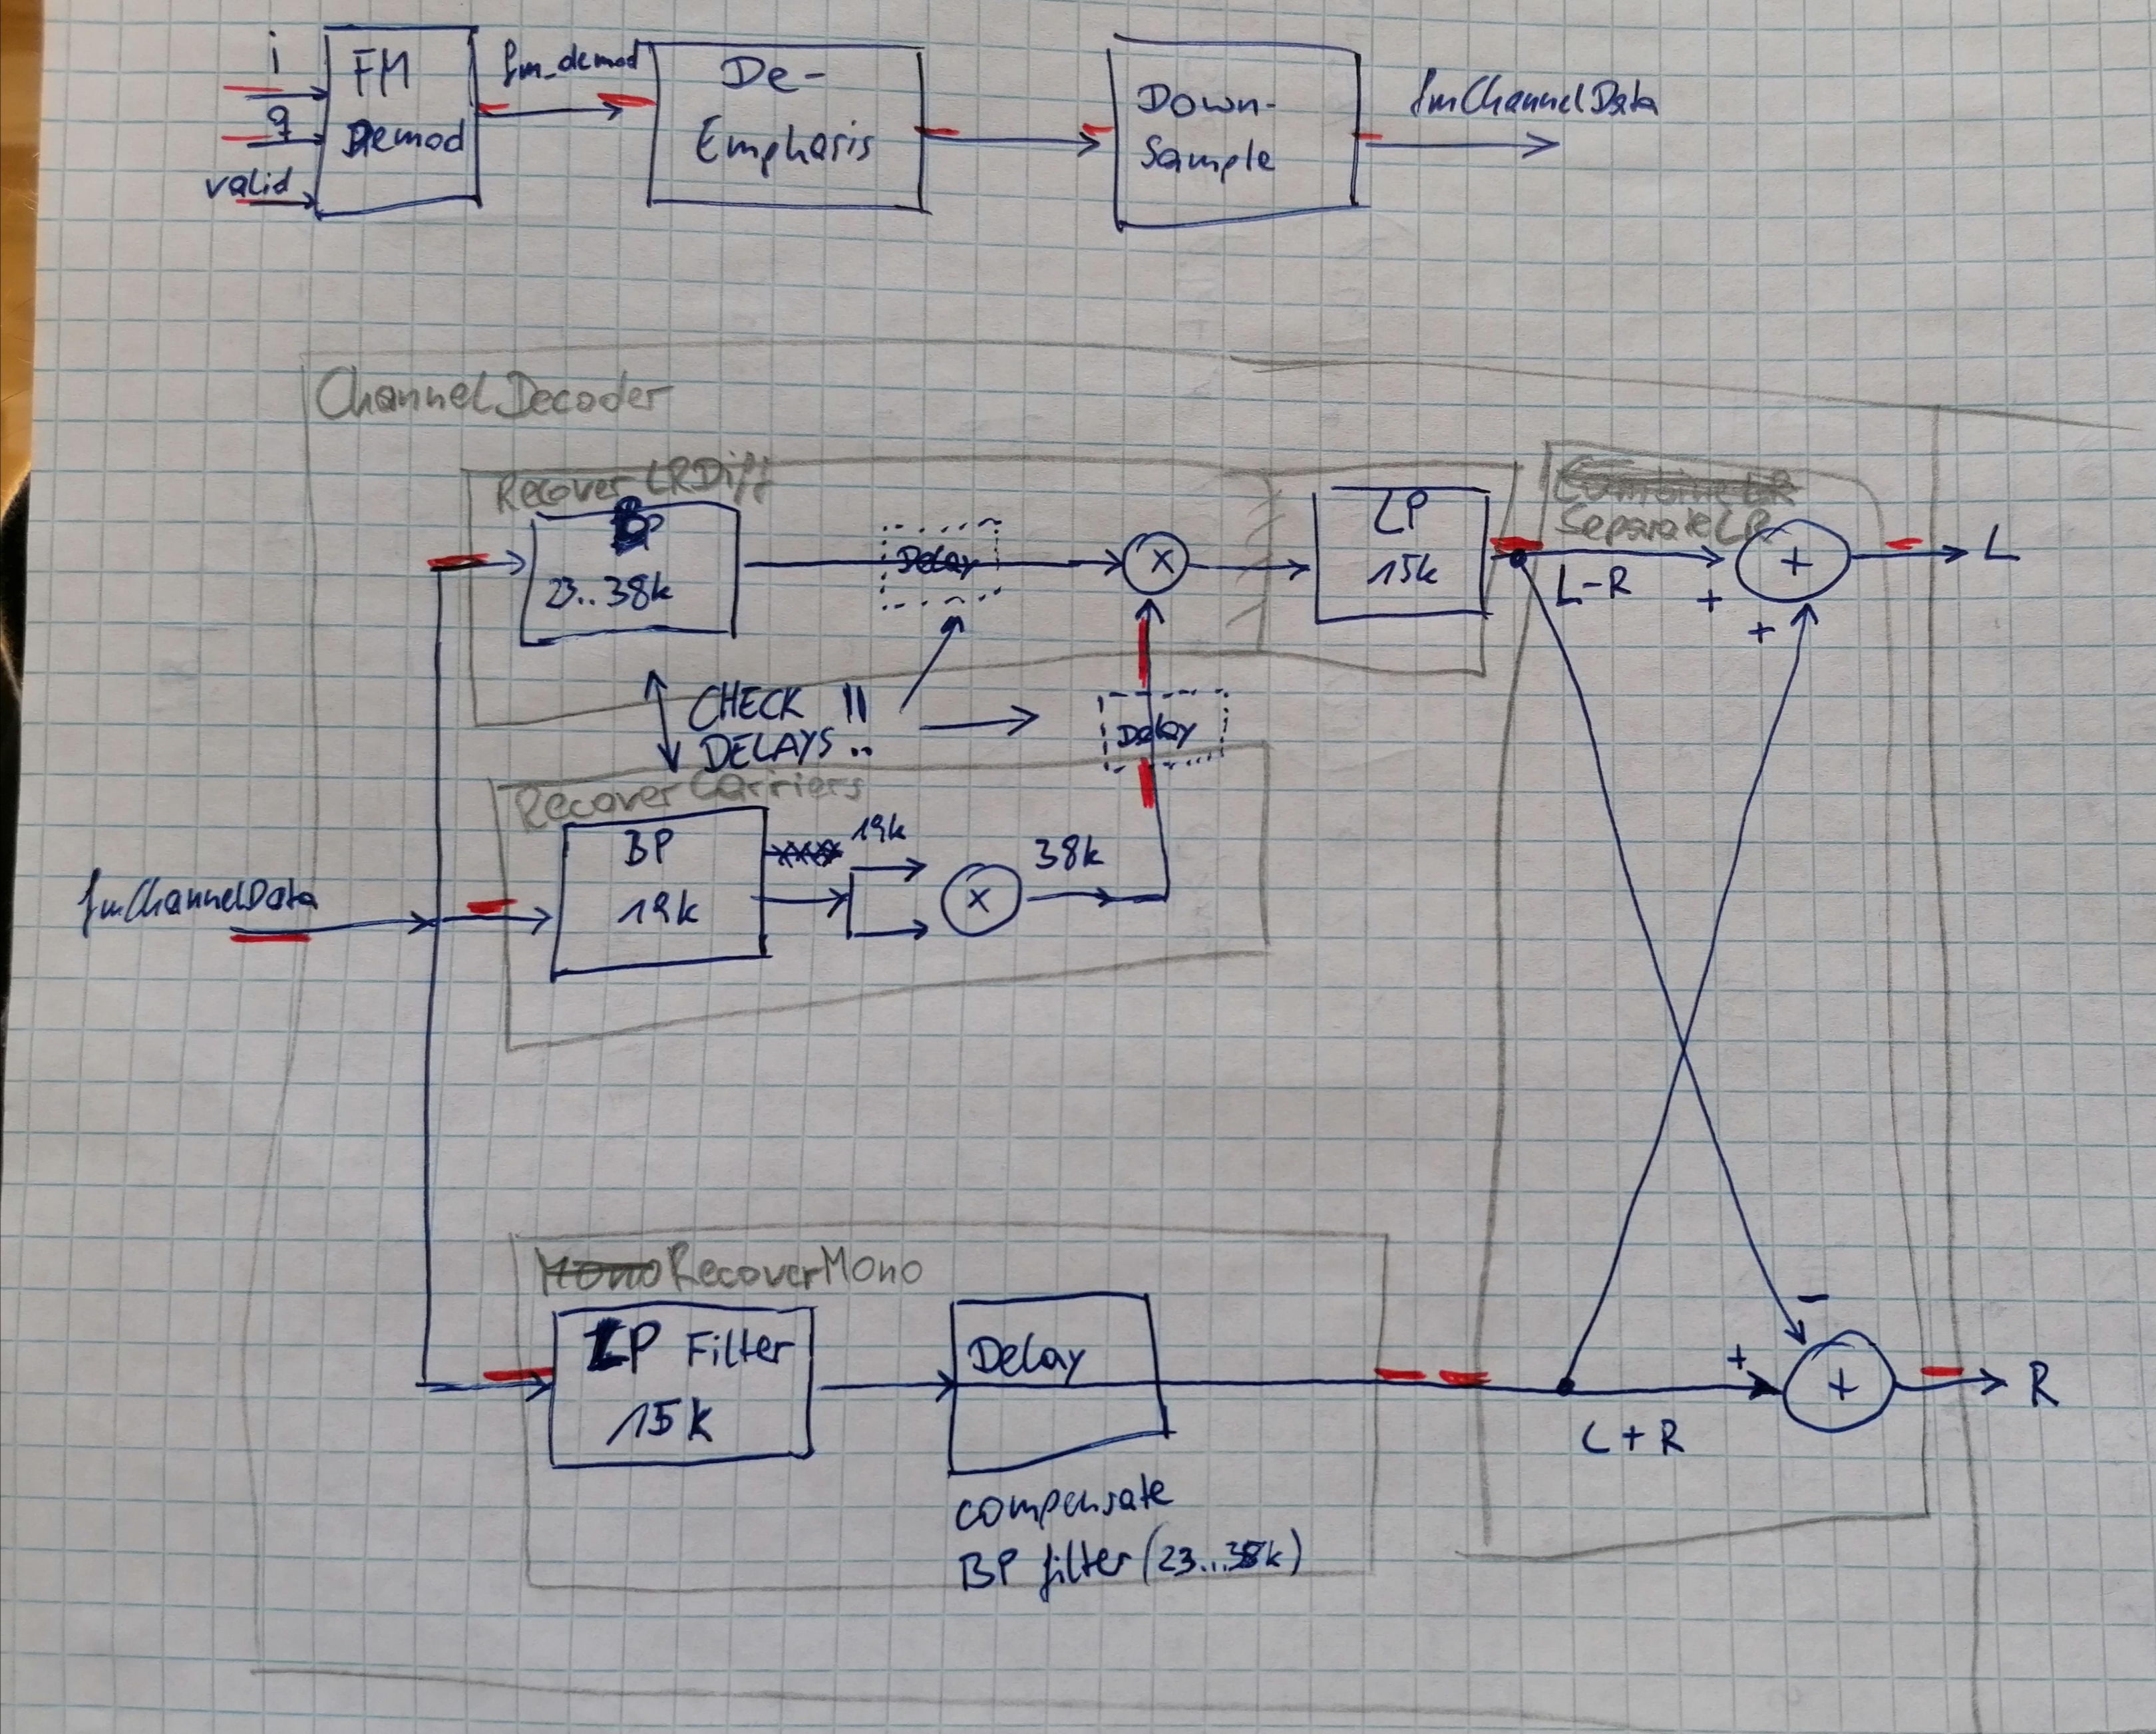 i
q
valid
FM
Demod
fm_demod
De-
Emphasis
Down-
Sample
fmChannelData
ChannelDecoder
Recover LRDiff
BP
23..38k
Delay
x
LP
15k
CombineLR
SeparateLR
L-R
+
+
+
L
CHECK !!
DELAYS !!
Delay
Recover Carriers
BP
19k
xxxx
19k
x
38k
fmChannelData
Mono RecoverMono
LP Filter
15k
Delay
compensate
BP filter (23...38k)
-
+
+
R
L+R